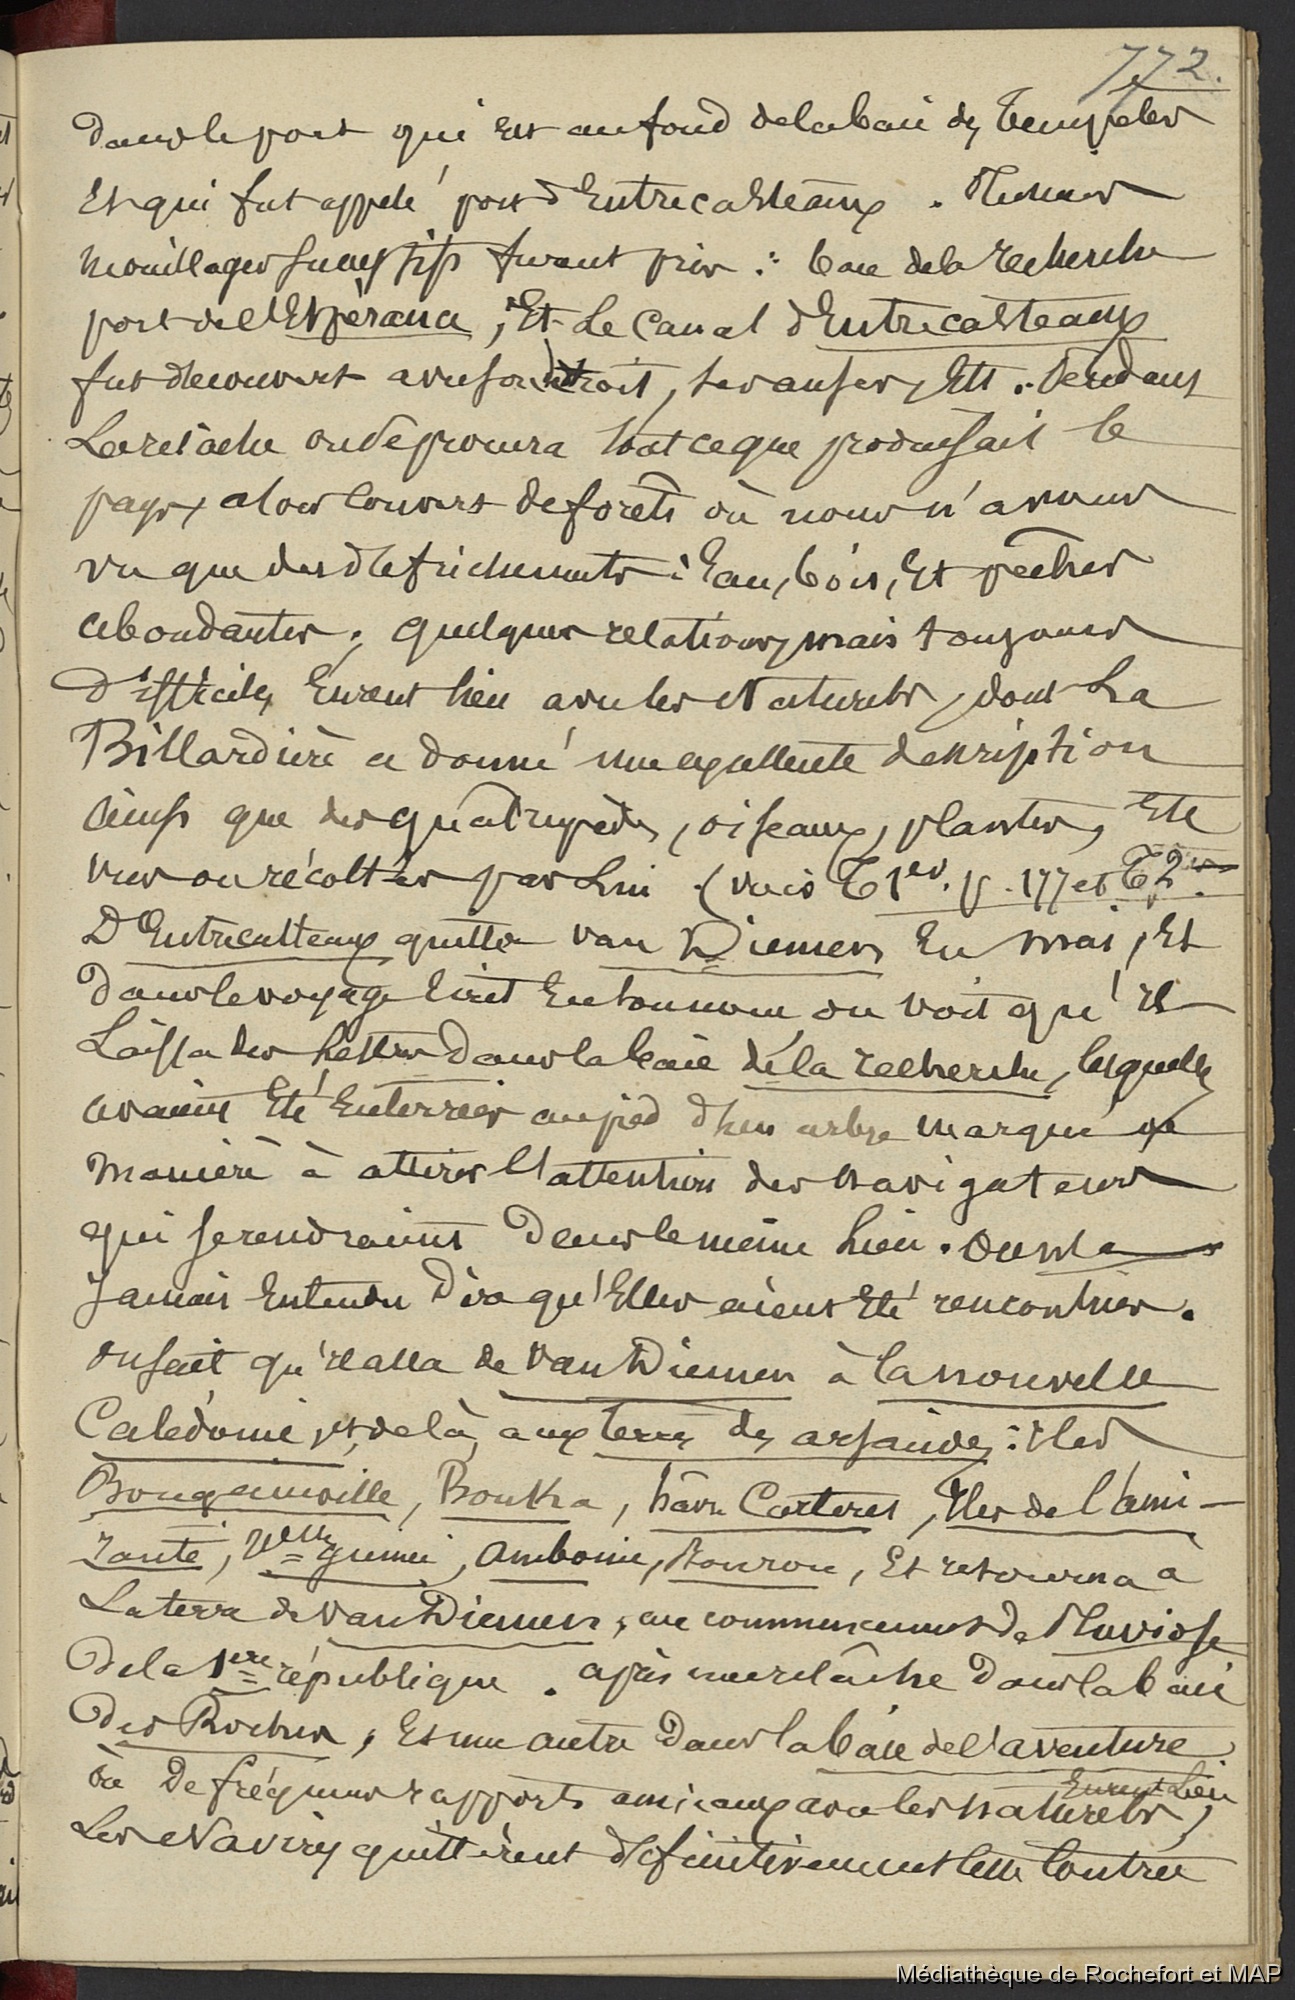 772.
dans le port qui est au fond de la baie des Tempêtes
Et qui fut appelé port d'Entrecasteaux. Plusieurs
mouillages successifs furent pris : baie de la recherche
port de l'Espérance, Et Le Canal d'Entrecasteaux
fut découvert avec son détroit, ses anses, Ett. Pendant
La relâche on se procura tout ce que produisait le
pays, alors couvert de forêts où nous n'avons
vu que des défrichements : Eau, bois, Et pêches
abondantes ; quelques relations, mais toujours
difficiles, Eurent lieu avec les Naturels, dont La
Billardière a donné une excellente description
ainsi que des quatrupèdes, oiseaux, plantes, Etc
vus ou récoltés par Lui (voir T 1er. p. 177 et T 2.
D'Entrecasteaux quitta Van Diemen En mai, Et
dans le voyage Ecrit En son nom on voit qu'il
Laissa des Lettres dans la baie de la recherche, lesquelles
avaient Eté Enterrées au pied d'un arbre marqué de
manière à attirer l'attention des navigateurs
qui se rendraient dans le même lieu. On n'a
jamais Entendu dire qu'Elles aient Eté rencontrées.
On sait qu'il alla de Van Diemen à la nouvelle
Calédonie, et de là, aux terres des arsacides : Iles
Bougainville, Bouka, hâvre Carteret, Iles de l'ami-
rauté, Nlle guinée, Amboine, Bourou, Et retourna à
La terre de Van Diemen, au commencement de Pluviose
de la 1ère république. après une relâche dans la baie
des Rochers, Et une autre dans la baie de l'aventure
où de fréquens rapports amicaux avec les naturels,
Eurent Lieu
Les Navires quittèrent définitivement cette Contrée
Médiathèque de Rochefort et MAP